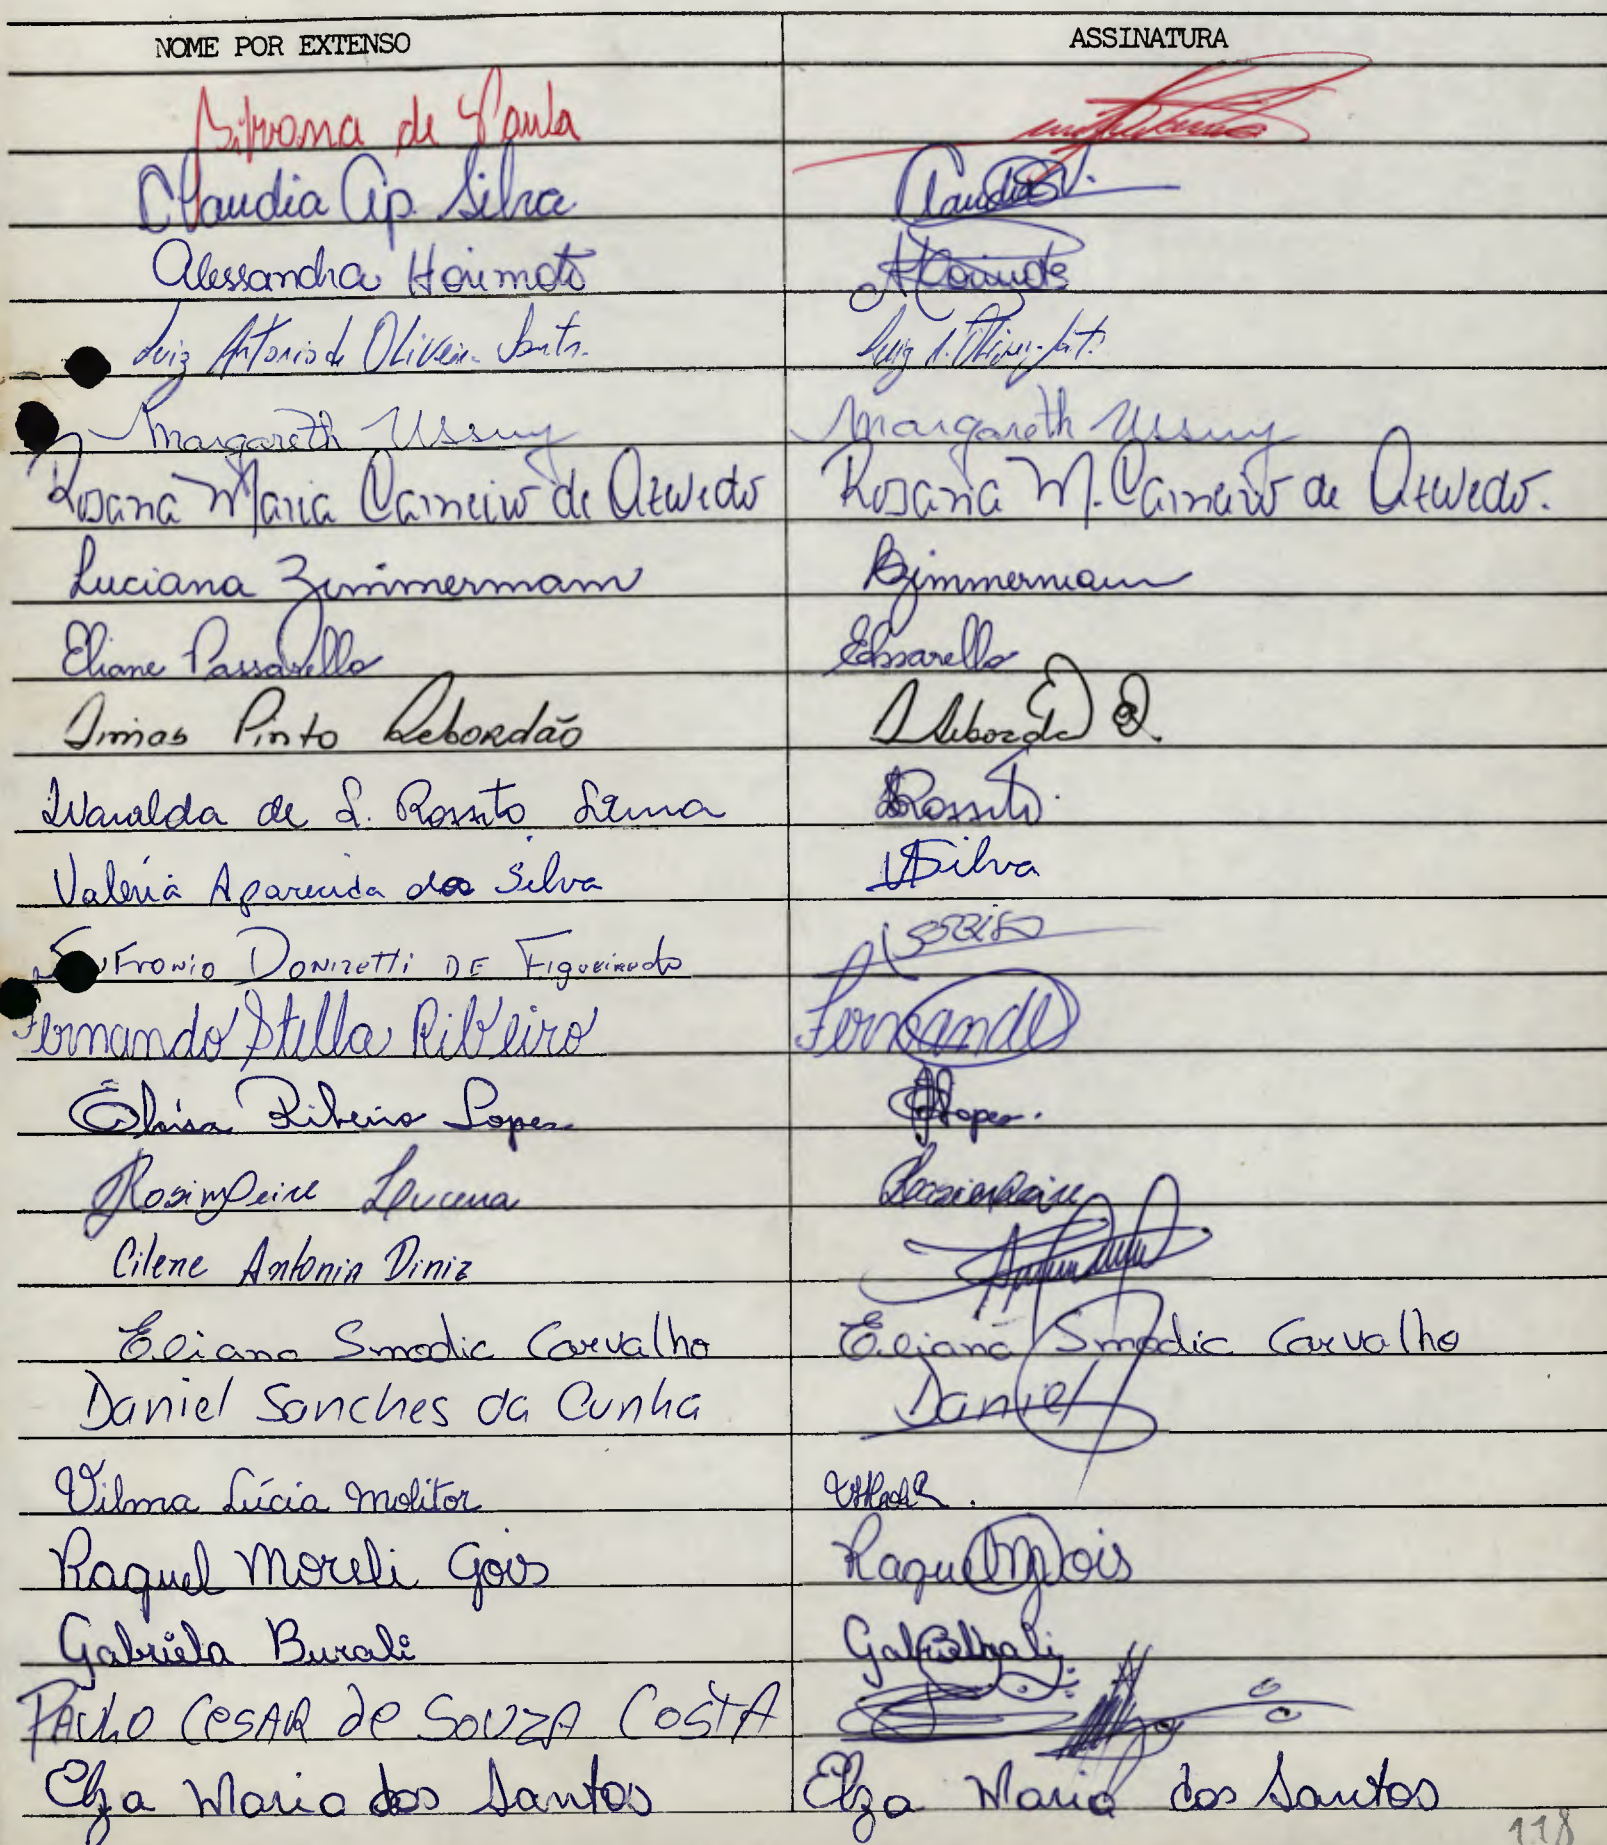 NOME POR EXTENSO ASSINATURA
Silvana de Paula
Claudia Ap. Silva Claudia
Alessandra Horimoto
Luiz Antonio de Oliveira Santos
Margareth Ussuy Margareth Ussuy
Rosana Maria Carneiro de Azevedo Rosana M. Carneiro de Azevedo.
Luciana Zimmermam Zimmermam
Eliane Passarello
Dimas Pinto Rebordão
de L. Rossito Lima Rossito
Valéria Aparecida da Silva VASilva
Donizetti DE Figueiredo
Fernando Stella Ribeiro Fernando
Eloísa Ribeiro Lopes Lopes.
Rosimeire Lucena Rosimeire
Cilene Antonia Diniz
Eliana Smodic Carvalho Eliana Smodic Carvalho
Daniel Sanches da Cunha Daniel
Vilma Lúcia Molitor
Raquel Moreli Gois Raquel M Gois
Gabriela Burali
PAULO CESAR de SOUZA COSTA
Elza Maria dos Santos Elza Maria dos Santos
118